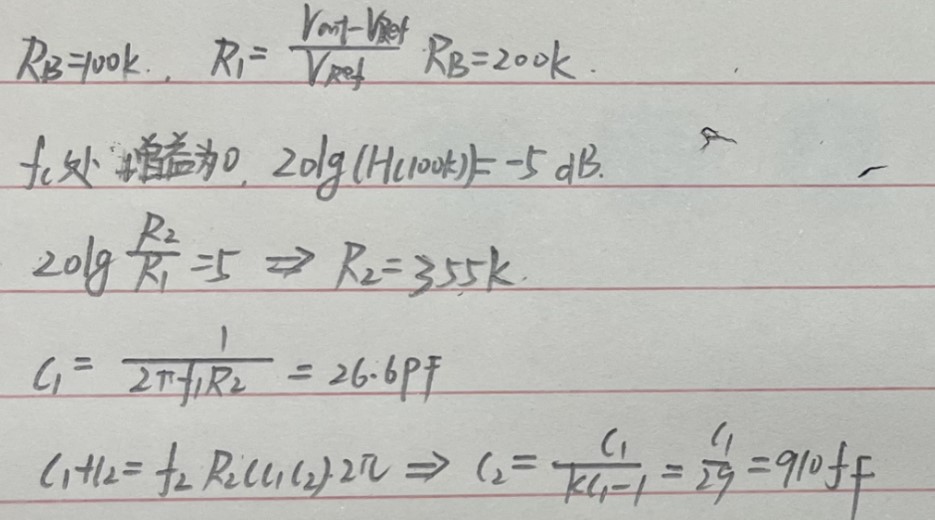 R_B=100k., R_1= \frac{V_{out}-V_{Ref}}{V_{Ref}} R_B=200k.
f_c处 增益为0, 20lg(H(100k))=-5 dB.
20lg \frac{R_2}{R_1} =5 ⇒ R_2=355k.
C_1= \frac{1}{2πf_1R_2} = 26.6pF
C_1+C_2= f_2 R_2(C_1C_2)·2π ⇒ C_2= \frac{C_1}{kC_1-1} = \frac{C_1}{29} =910fF